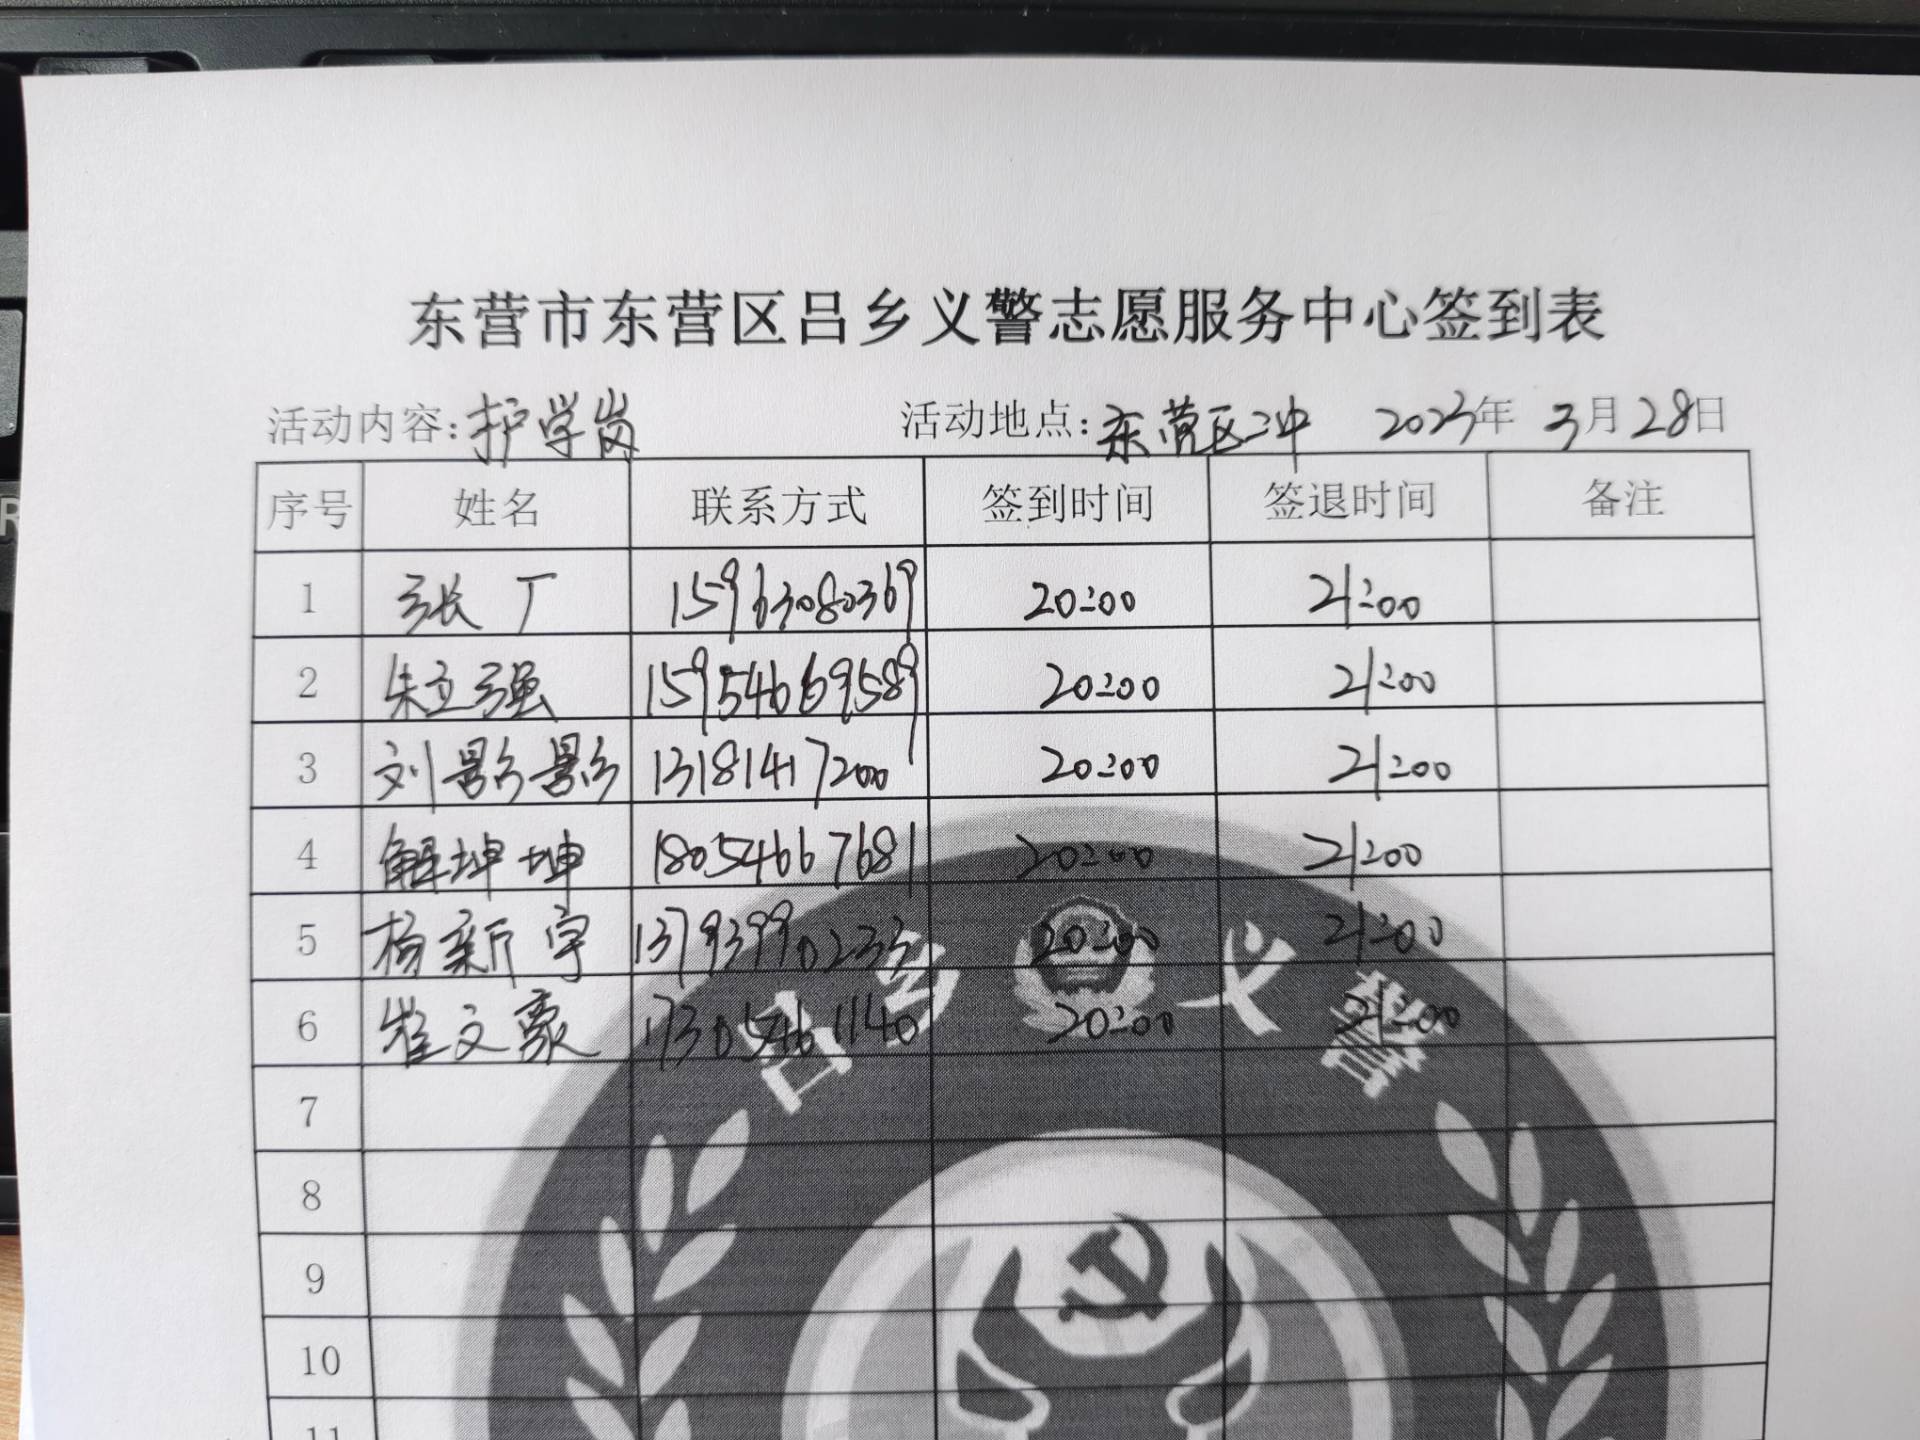 东营市东营区吕乡义警志愿服务中心签到表
活动内容:护学岗 活动地点:东营区二中 2023年 3月28日
序号 姓名 联系方式 签到时间 签退时间 备注
1 张广 15963080369 20:00 21:00
2 朱立强 15954669589 20:00 21:00
3 刘影影 13181417200 20:00 21:00
4 解坤坤 18054667681 20:00 21:00
5 杨新宇 13793990233 20:00 21:00
6 崔文豪 17305461140 20:00 21:00
7
8
9
10
11
吕乡义警